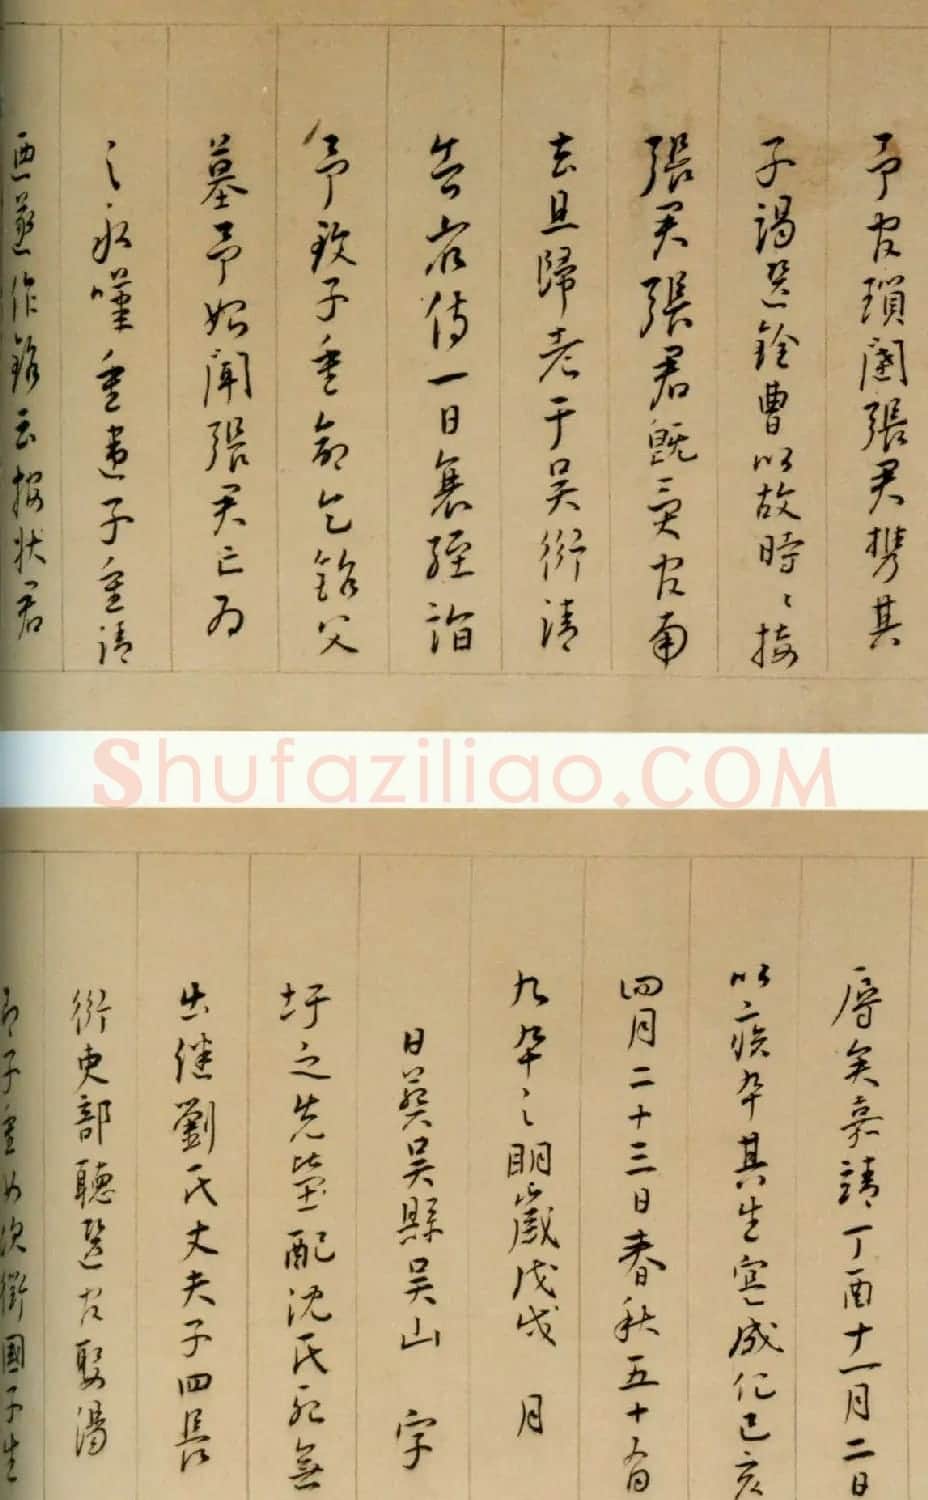 予官瑣闥張君携其
子謁選銓曹以故時〻接
張君張君既受官南
去且歸老于吴衍請
告家侍一日衰絰詣
予致子重命乞銘父
墓予始聞張君亡為
之永嘆重違子重請
亟遂作銘云按状君
Shufaziliao.COM
辱矣嘉靖丁酉十一月二日
以疾卒其生寔成化己亥
四月二十三日春秋五十有
九卒之明歲戊戌 月
日葬吴縣吴山 字
圩之先塋配沈氏祀無
出继劉氏丈夫子四長
衍吏部聽選官娶湯
即子重也次衢國子生